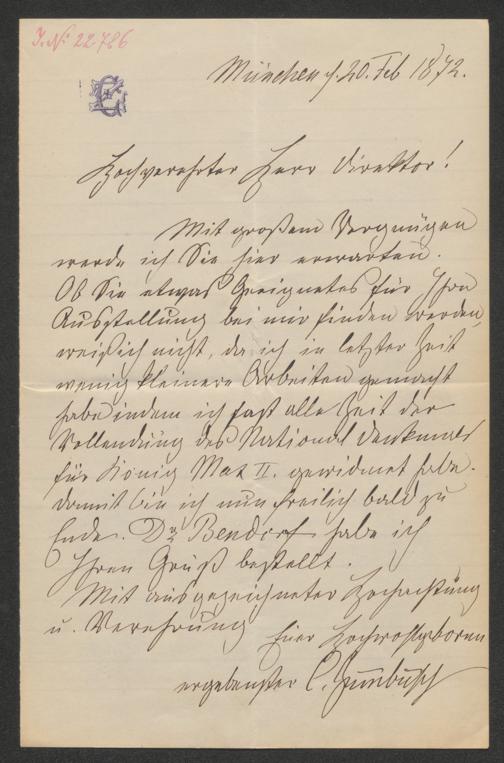 J. N. 22786
München d. 20. Feb 1872.
Hochverehrter Herr Direktor!
Mit großem Vergnügen
werde ich Sie hier erwarten.
Ob Sie etwas Geeignetes für Ihre
Ausstellung bei mir finden werden,
weiß ich nicht, da ich in letzter Zeit
wenig kleinere Arbeiten gemacht
habe indem ich fast alle Zeit der
Vollendung des National Denkmals
für König Max II. gewidmet habe.
damit bin ich nun freilich bald zu
Ende. Dr. Bendorf habe ich
Ihren Gruß bestellt.
Mit ausgezeichneter Hochachtung
u. Verehrung Euer Hochwohlgeboren
ergebenster C. Zumbusch